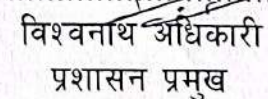 विश्वनाथ अधिकारी
प्रशासन प्रमुख